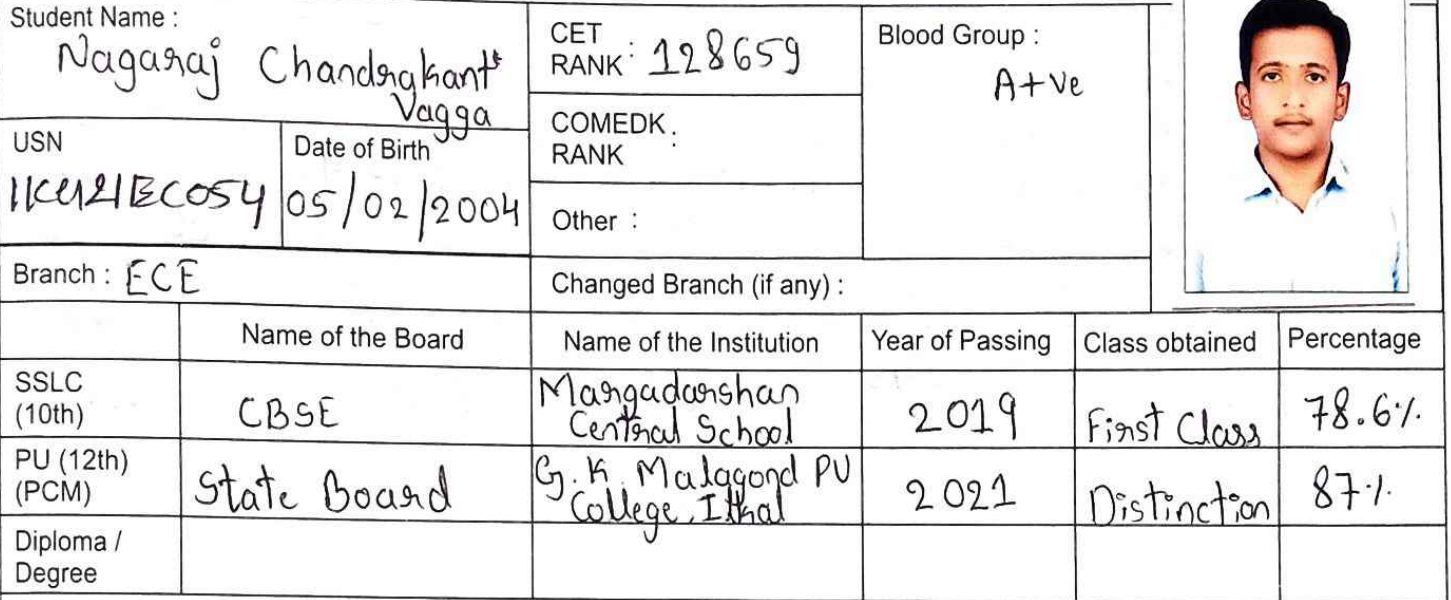 Student Name :
Nagaraj Chandrakant
Vagga
CET RANK : 128659
Blood Group :
A+ve
USN
Date of Birth
05/02/2004
COMEDK RANK :
Other :
Branch : ECE
Changed Branch (if any) :
Name of the Board Name of the Institution Year of Passing Class obtained Percentage
SSLC (10th) CBSE Margadarshan Central School 2019 First Class 78.6%
PU (12th) (PCM) State Board G.K. Malagond PU College, Ithal 2021 Distinction 87%
Diploma / Degree